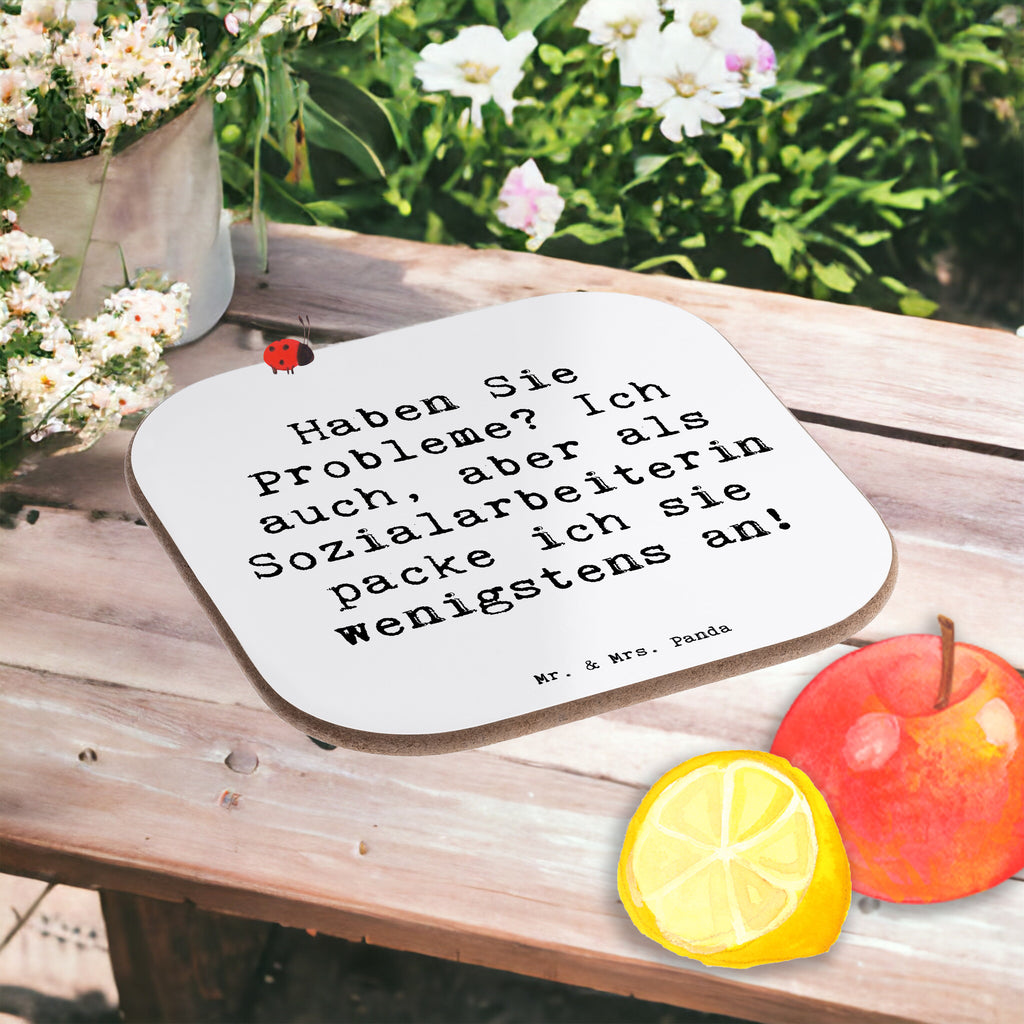 Haben Sie
Probleme? Ich
auch, aber als
Sozialarbeiterin
packe ich sie
wenigstens an!
Mr. & Mrs. Panda